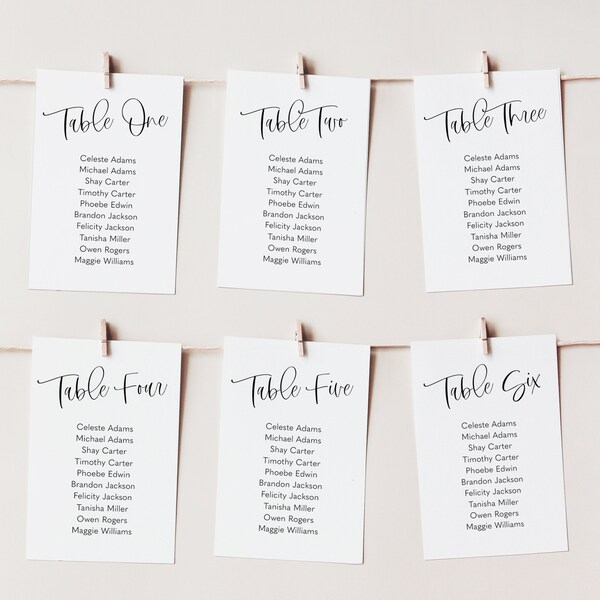 Table One
Celeste Adams
Michael Adams
Shay Carter
Timothy Carter
Phoebe Edwin
Brandon Jackson
Felicity Jackson
Tanisha Miller
Owen Rogers
Maggie Williams
Table Two
Celeste Adams
Michael Adams
Shay Carter
Timothy Carter
Phoebe Edwin
Brandon Jackson
Felicity Jackson
Tanisha Miller
Owen Rogers
Maggie Williams
Table Three
Celeste Adams
Michael Adams
Shay Carter
Timothy Carter
Phoebe Edwin
Brandon Jackson
Felicity Jackson
Tanisha Miller
Owen Rogers
Maggie Williams
Table Four
Celeste Adams
Michael Adams
Shay Carter
Timothy Carter
Phoebe Edwin
Brandon Jackson
Felicity Jackson
Tanisha Miller
Owen Rogers
Maggie Williams
Table Five
Celeste Adams
Michael Adams
Shay Carter
Timothy Carter
Phoebe Edwin
Brandon Jackson
Felicity Jackson
Tanisha Miller
Owen Rogers
Maggie Williams
Table Six
Celeste Adams
Michael Adams
Shay Carter
Timothy Carter
Phoebe Edwin
Brandon Jackson
Felicity Jackson
Tanisha Miller
Owen Rogers
Maggie Williams